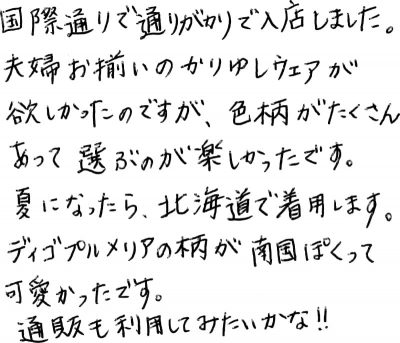 国際通りで通りがかりで入店しました。
夫婦お揃いのかりゆしウェアが
欲しかったのですが、色柄がたくさん
あって選ぶのが楽しかったです。
夏になったら、北海道で着用します。
ディゴプルメリアの柄が南国ぽくって
可愛かったです。
通販も利用してみたいかな!!